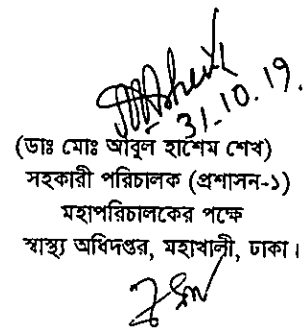 31.10.19.
(ডাঃ মোঃ আবুল হাশেম শেখ)
সহকারী পরিচালক (প্রশাসন-১)
মহাপরিচালকের পক্ষে
স্বাস্থ্য অধিদপ্তর, মহাখালী, ঢাকা।